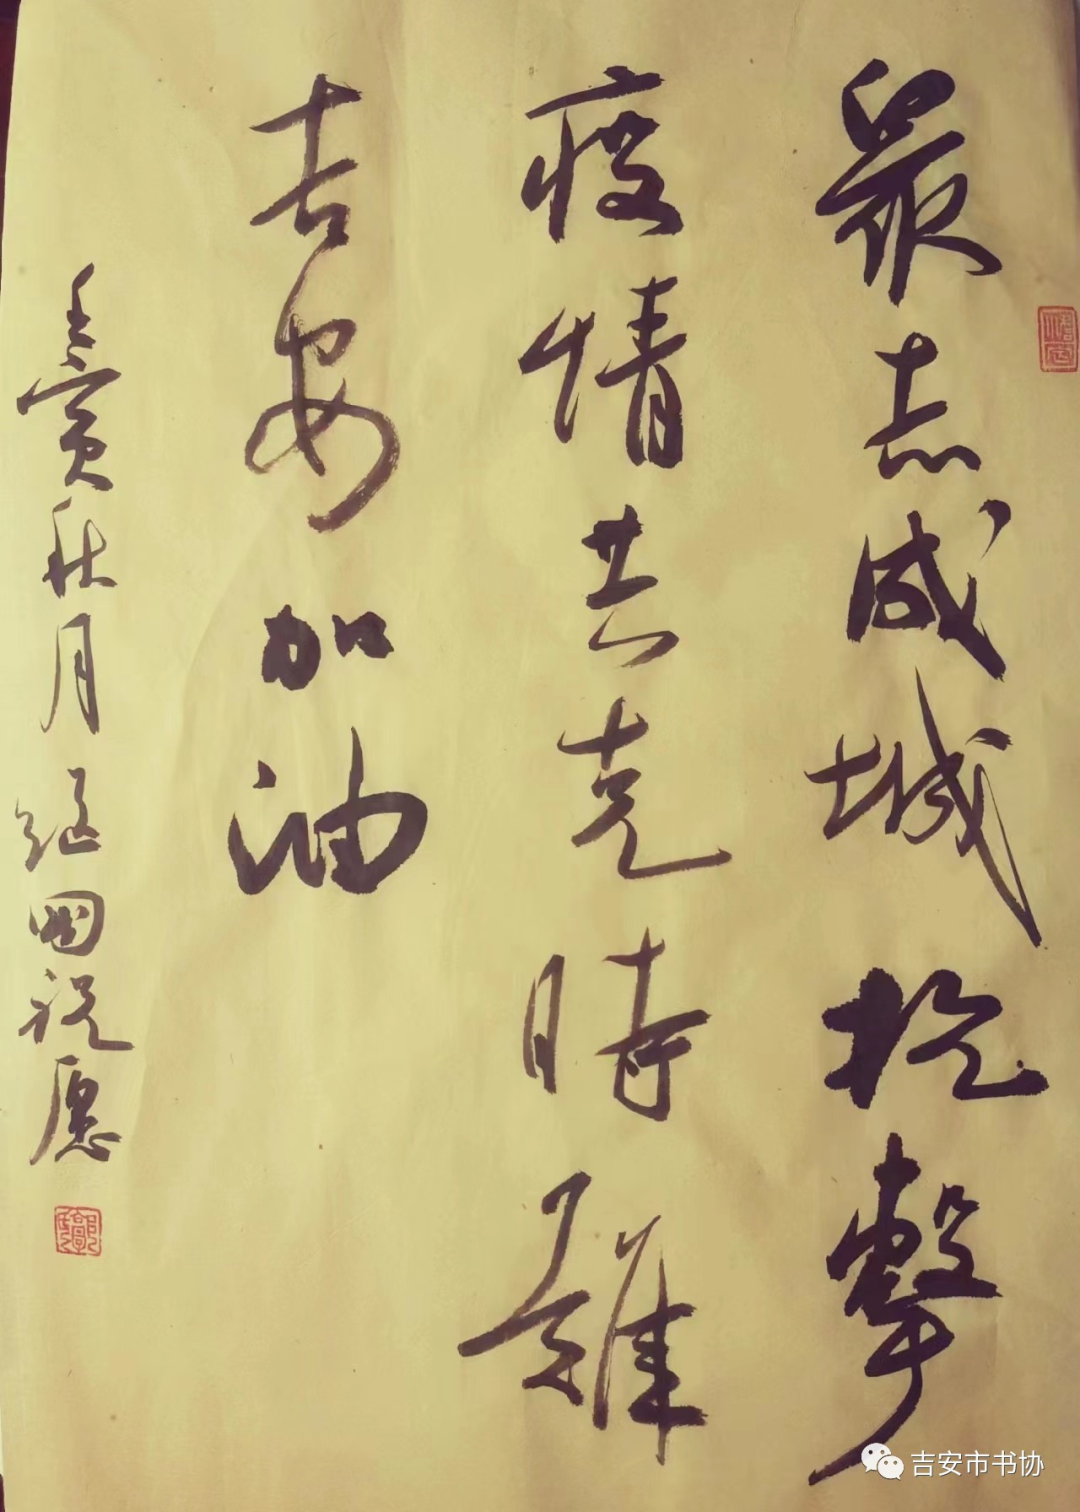 眾志成城抗擊
疫情共克時艱
吉安加油
壬寅秋月继国祝愿
吉安市书协